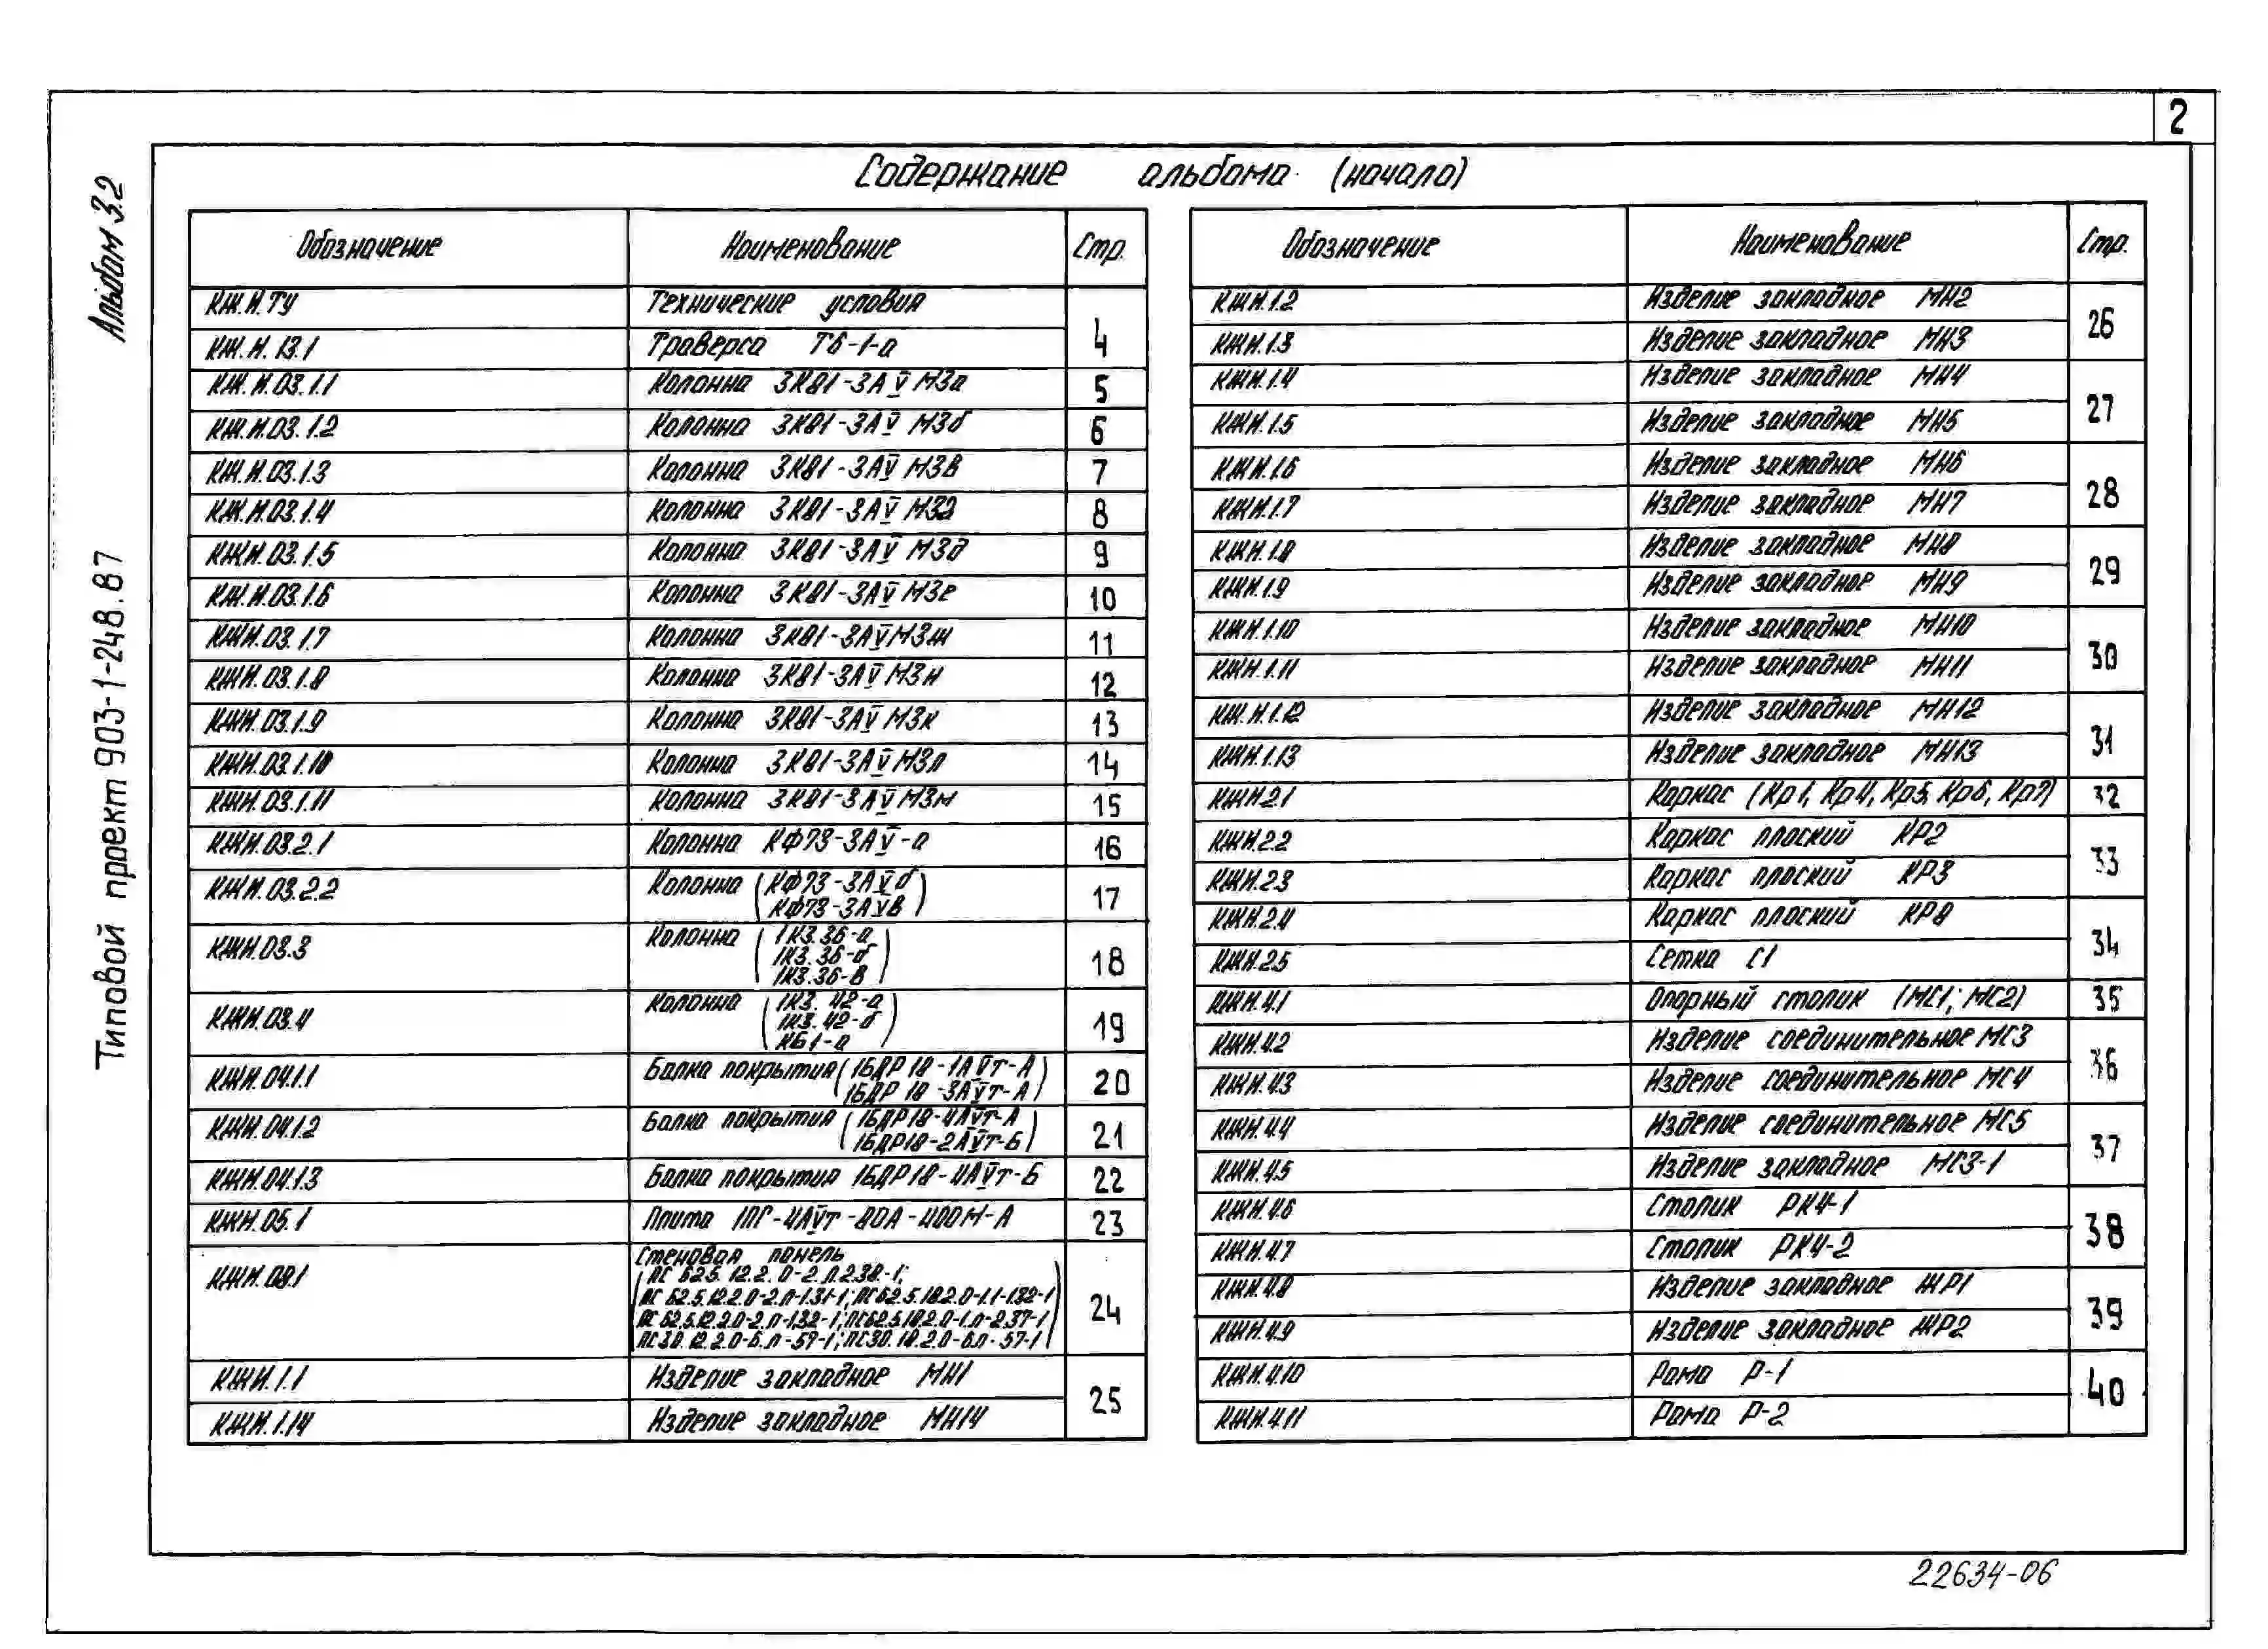 2
Альбом 3.2
Типовой проект 903-1-248.87
Содержание альбома (начало)
Обозначение Наименование Стр.
КЖ.И.ТУ Технические условия
КЖ.И.13.1 Траверса Т6-1-а 4
КЖ.И.03.1.1 Колонна 3К81-3АV М3а 5
КЖ.И.03.1.2 Колонна 3К81-3АV М3б 6
КЖ.И.03.1.3 Колонна 3К81-3АV М3в 7
КЖ.И.03.1.4 Колонна 3К81-3АV М3г 8
КЖИ.03.1.5 Колонна 3К81-3АV М3д 9
КЖ.И.03.1.6 Колонна 3К81-3АV М3е 10
КЖИ.03.1.7 Колонна 3К81-3АV М3ж 11
КЖИ.03.1.8 Колонна 3К81-3АV М3и 12
КЖИ.03.1.9 Колонна 3К81-3АV М3к 13
КЖИ.03.1.10 Колонна 3К81-3АV М3л 14
КЖИ.03.1.11 Колонна 3К81-3АV М3м 15
КЖИ.03.2.1 Колонна КФ73-3АV-а 16
КЖИ.03.2.2 Колонна (КФ73-3АVб
КФ73-3АVв) 17
КЖИ.03.3 Колонна (1К3.36-а
1К3.36-б
1К3.36-в) 18
КЖИ.03.4 Колонна (1К3.42-а
1К3.42-б
КБ1-а) 19
КЖИ.04.1.1 Балка покрытия (1БДР18-1АVт-А
1БДР18-3АVт-А) 20
КЖИ.04.1.2 Балка покрытия (1БДР18-4АVт-А
1БДР18-2АVт-Б) 21
КЖИ.04.1.3 Балка покрытия 1БДР18-4АVт-Б 22
КЖИ.05.1 Плита 1ПГ-4АVт-80А-400М-А 23
КЖИ.08.1 Стеновая панель
(ПС 62.5.12.2.0-2.Л.2.38.-1;
ПС 62.5.12.2.0-2.Л-1.31-1; ПС62.5.18.2.0-1.1-1.32-1
ПС 62.5.12.2.0-2.Л-1.32-1; ПС62.5.18.2.0-1.Л-2.37-1
ПС30.12.2.0-6.Л-57-1; ПС30.18.2.0-6.Л-57-1) 24
КЖИ.1.1 Изделие закладное МН1
КЖИ.1.14 Изделие закладное МН14 25
Обозначение Наименование Стр.
КЖИ.1.2 Изделие закладное МН2
КЖИ.1.3 Изделие закладное МН3 26
КЖИ.1.4 Изделие закладное МН4
КЖИ.1.5 Изделие закладное МН5 27
КЖИ.1.6 Изделие закладное МН6
КЖИ.1.7 Изделие закладное МН7 28
КЖИ.1.8 Изделие закладное МН8
КЖИ.1.9 Изделие закладное МН9 29
КЖИ.1.10 Изделие закладное МН10
КЖИ.1.11 Изделие закладное МН11 30
КЖ.И.1.12 Изделие закладное МН12
КЖИ.1.13 Изделие закладное МН13 31
КЖИ2.1 Каркас (Кр1, Кр4, Кр5, Кр6, Кр7) 32
КЖИ.2.2 Каркас плоский КР2
КЖИ.2.3 Каркас плоский КР3 33
КЖИ.2.4 Каркас плоский КР8
КЖИ.2.5 Сетка С1 34
КЖИ.4.1 Опорный столик (МС1; МС2) 35
КЖИ.4.2 Изделие соединительное МС3
КЖИ.4.3 Изделие соединительное МС4 36
КЖИ.4.4 Изделие соединительное МС5
КЖИ.4.5 Изделие закладное МС3-1 37
КЖИ.4.6 Столик РК4-1
КЖИ.4.7 Столик РК4-2 38
КЖИ.4.8 Изделие закладное ЖР1
КЖИ.4.9 Изделие закладное ЖР2 39
КЖИ.4.10 Рама Р-1
КЖИ.4.11 Рама Р-2 40
22634-06